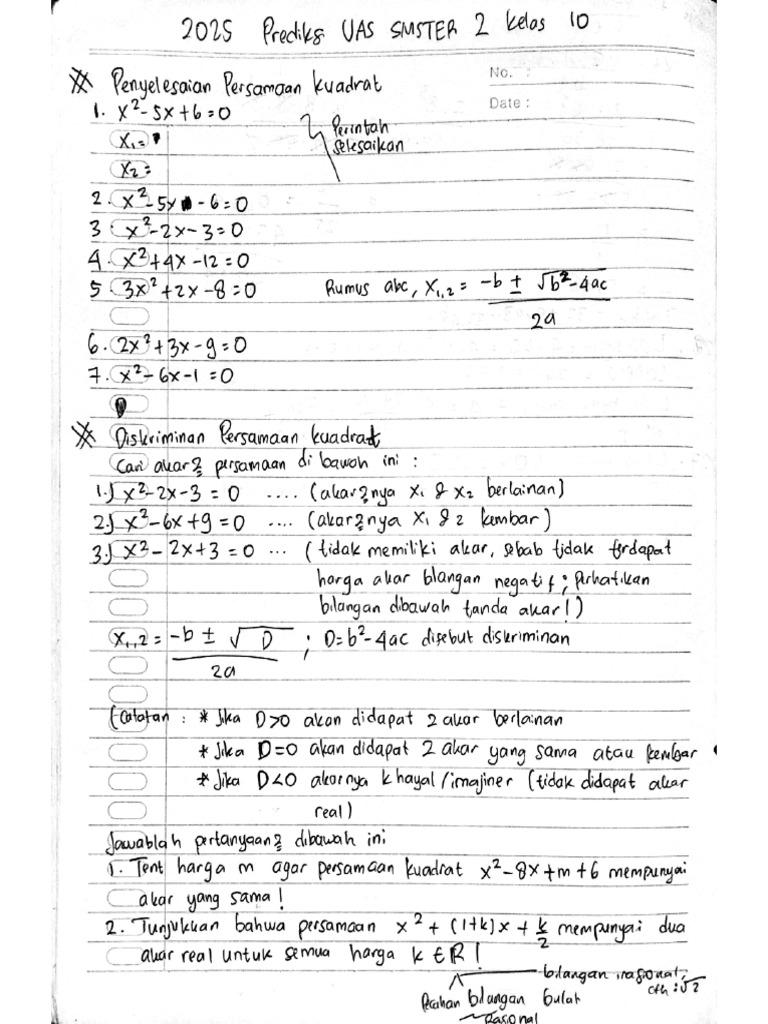 2025 Prediksi UAS SMSTER 2 Kelas 10
No. :
Date :
Penyelesaian Persamaan Kuadrat
1. x²-5x+6=0
x₁=
x₂=
Perintah
selesaikan
2. x²-5x -6=0
3 x²-2x-3=0
4. x²+4x-12=0
5 3x²+2x-8=0 Rumus abc, x₁,₂ = -b ± √b²-4ac / 2a
6. 2x²+3x-9=0
7. x²-6x-1=0
Diskriminan Persamaan Kuadrat
Cari akar2 persamaan di bawah ini :
1.) x²-2x-3=0 .... (akar2nya x₁ & x₂ berlainan)
2.) x²-6x+9=0 .... (akar2nya x₁ & 2 kembar)
3.) x²-2x+3=0 ... (tidak memiliki akar, sebab tidak terdapat
harga akar blangan negatif; perhatikan
bilangan dibawah tanda akar!)
x₁,₂ = -b ± √D / 2a ; D=b²-4ac disebut diskriminan
(Catatan : * Jika D>0 akan didapat 2 akar berlainan
* Jika D=0 akan didapat 2 akar yang sama atau kembar
* Jika D<0 akarnya khayal/imajiner (tidak didapat akar
real)
Jawablah pertanyaan2 dibawah ini
1. Tent harga m agar persamaan kuadrat x²-8x+m+6 mempunyai
akar yang sama!
2. Tunjukkan bahwa persamaan x²+(1+k)x+k/2 mempunyai dua
akar real untuk semua harga k ∈ R!
bilangan irasional,
cth : √2
Pecahan bilangan bulat
rasional